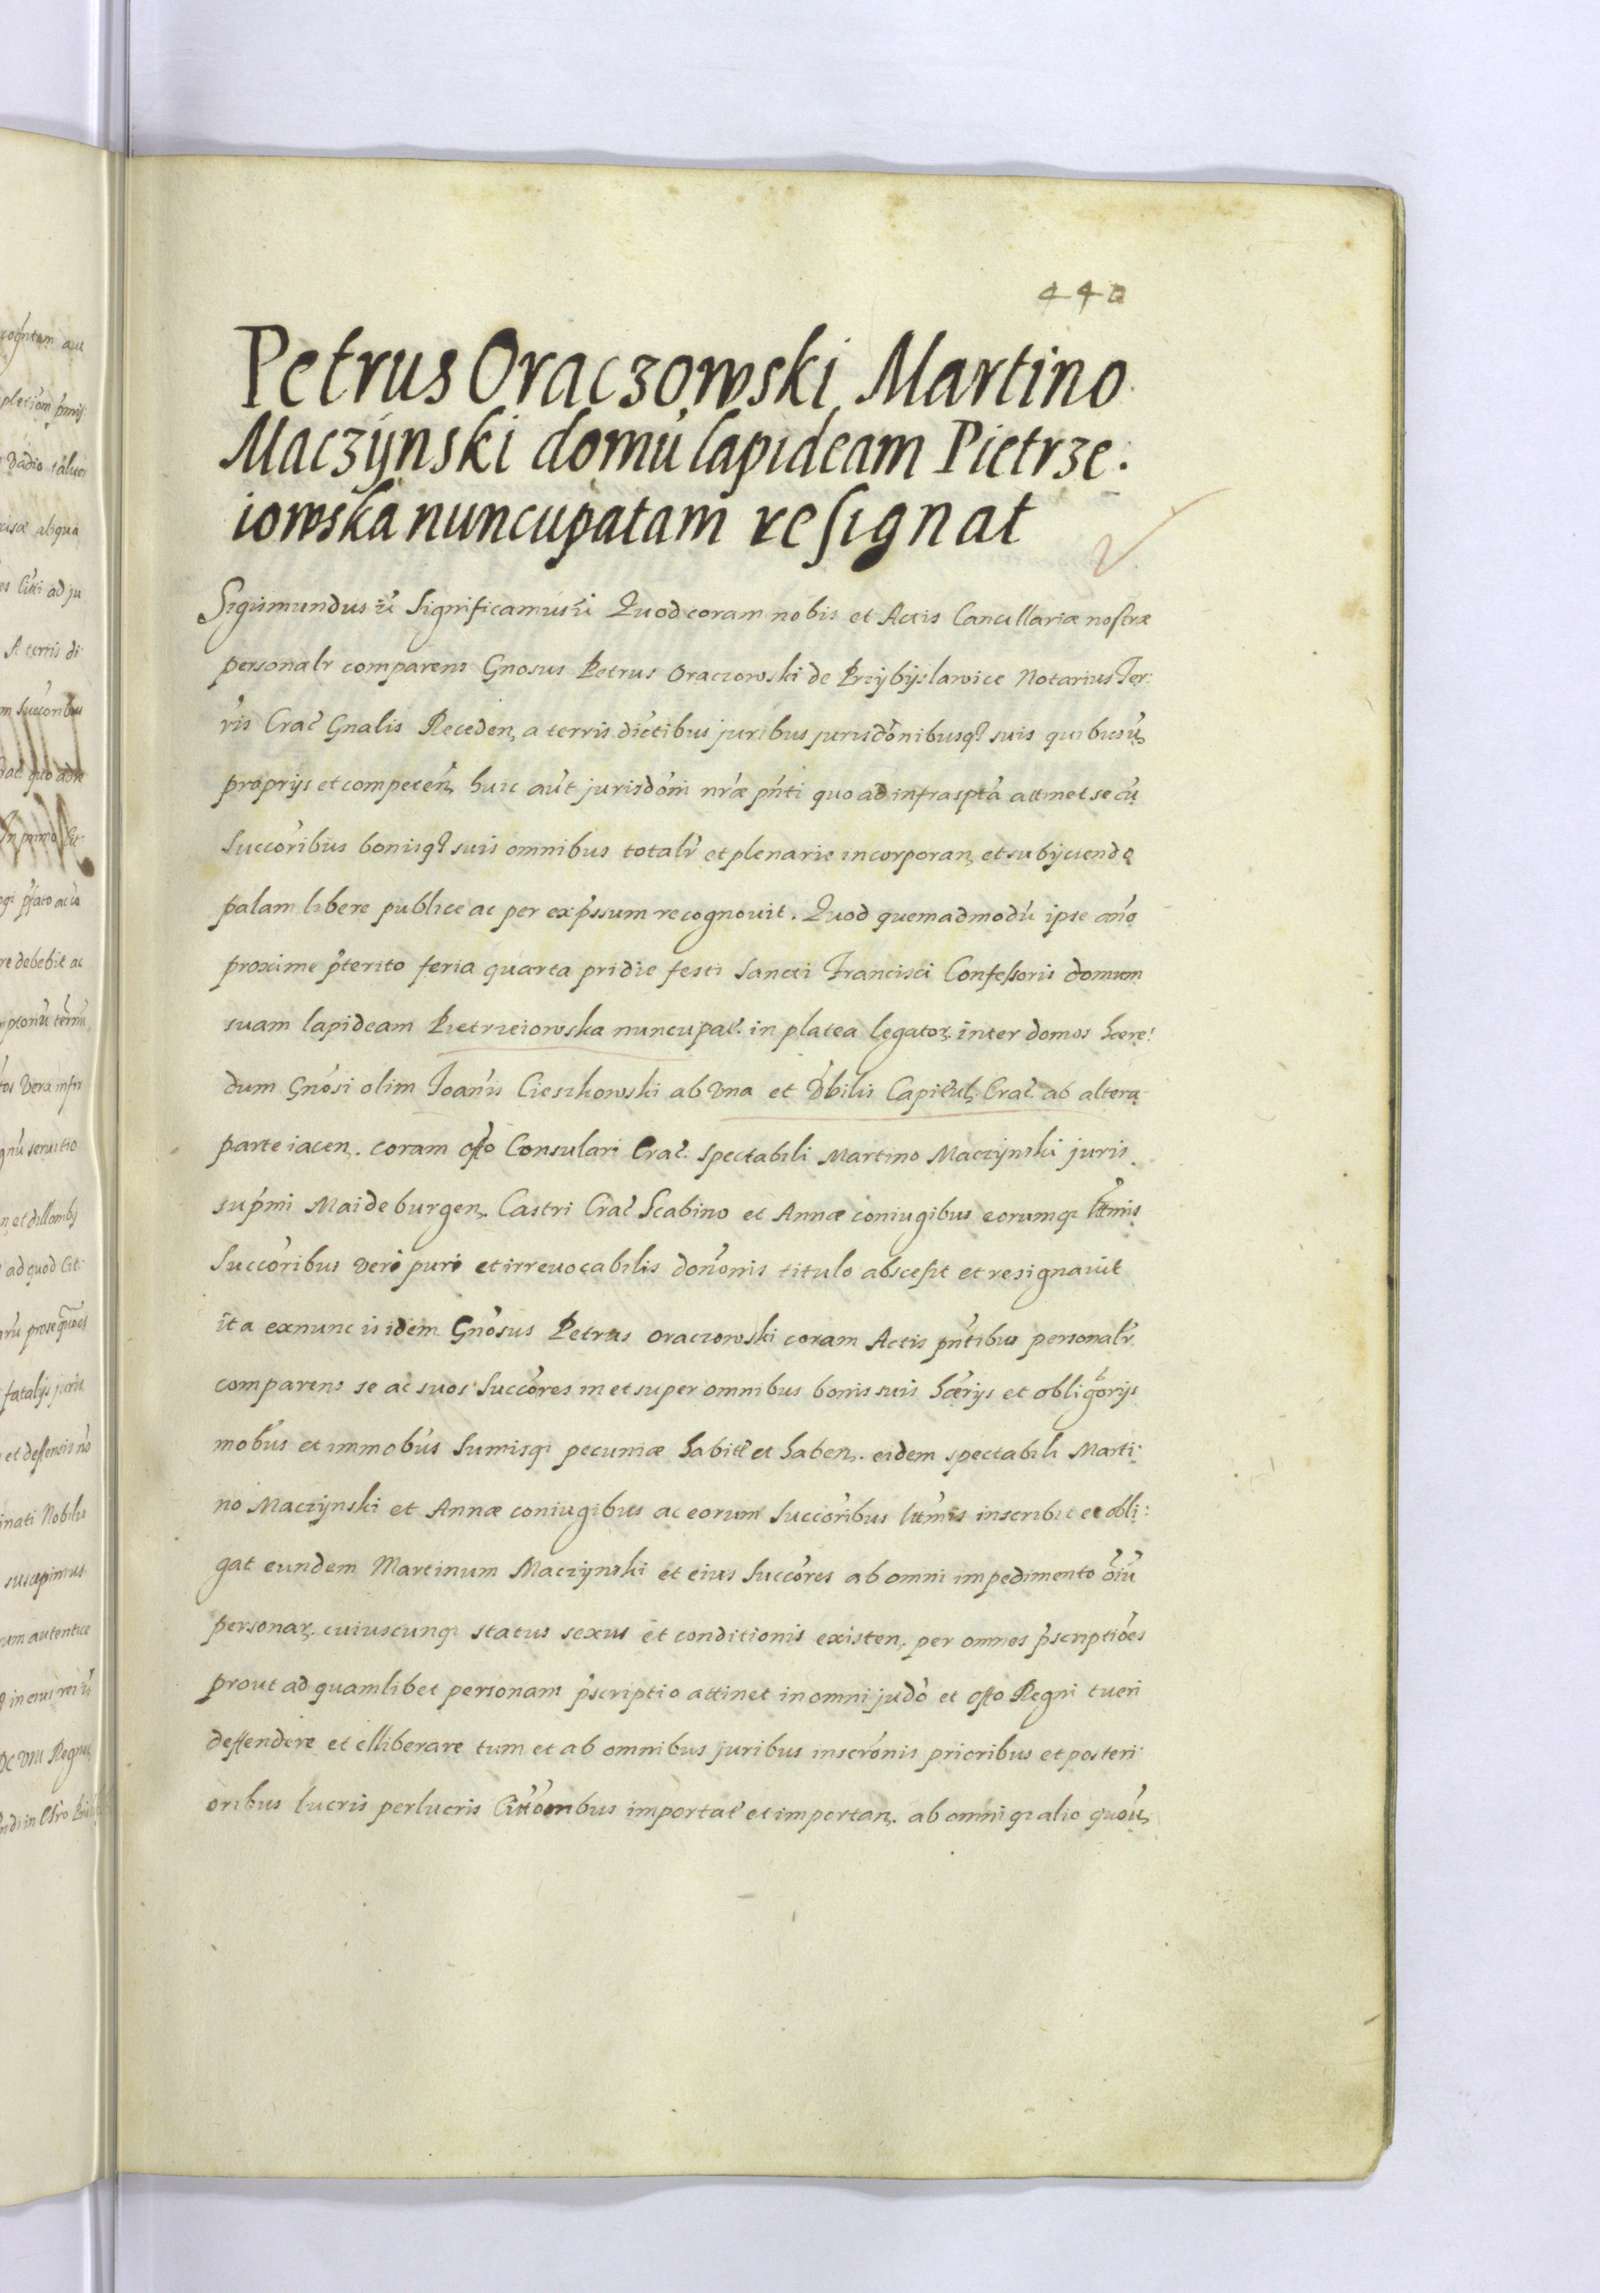 440
Petrus Oraczowski Martino
Maczÿnski domú lapideam Pietrze:
iowska nuncupatam resignat
Sigismundus Significamus Quod coram nobis et Actis Cancellariæ nostræ
personalr comparens Gnosus Petrus Oraczowski de Przybÿslawice Notarius Ter:
ris Crac̃ Gnalis Receden, a terris dictibus juribus jurisdõnibusq3 suis quibusũ,
proprijs et competeñ, huic aũt jurisdõni nr̃æ pñti quo ad infrasptã attinet se cũ
Succoribus bonisq3 suis omnibus totalr̃ et plenarie incorporan, et subÿciendo
palam libere publice ac per exp̃ssum recognouit. Quod quemadmodũ ipse añõ
proxime p̃terito feria quarta pridie festi Sancti Francisci Confessoris domum
suam lapideam Pietrzeiowska nuncupat̃. in platea legatoꝝ. inter domos hære:
dum Gnosi olim Joañis Cieszkowski ab Vna et Vb̃ilis Capitul, Crac̃. ab altera
parte iacen,. coram offo Consulari Crac̃. spectabili Martino Maczÿnski juris
sup̃mi Maideburgen,. Castri Crac̃ Scabino et Annæ coniugibus eorumq3 lt̃mis
Succoribus veri puri et irreuocabilis doñonis titulo abscessit et resignauit
ita exnunc is idem Gnosus Petrus Oraczowski coram Actis pñtibus personalr̃
comparens se ac suos Succores in et super omnibus bonis suis hærijs et obligõrijs
mobũs et immobũs Sumisq3 pecuniæ habit̃ et haben,. eidem spectabili Marti:
no Maczÿnski et Annæ coniugibus ac eorum Succoribus lt̃mis inscribit et obli:
gat eundem Martinum Maczÿnski et eius Succores ab omni impedimento õiũ
personaꝝ. cuiuscunq3 status sexus et conditionis existen,. per omnes p̃scriptiões
prout ad quamlibet personam p̃scriptio attinet in omni judõ et offo Regni tueri
deffendere et elliberare tum et ab omnibus juribus inscrõnis prioribus et posteri:
oribus lucris perlucris Citt̃onibus importat̃ et importan,. ab omniq3 alio quoũ,